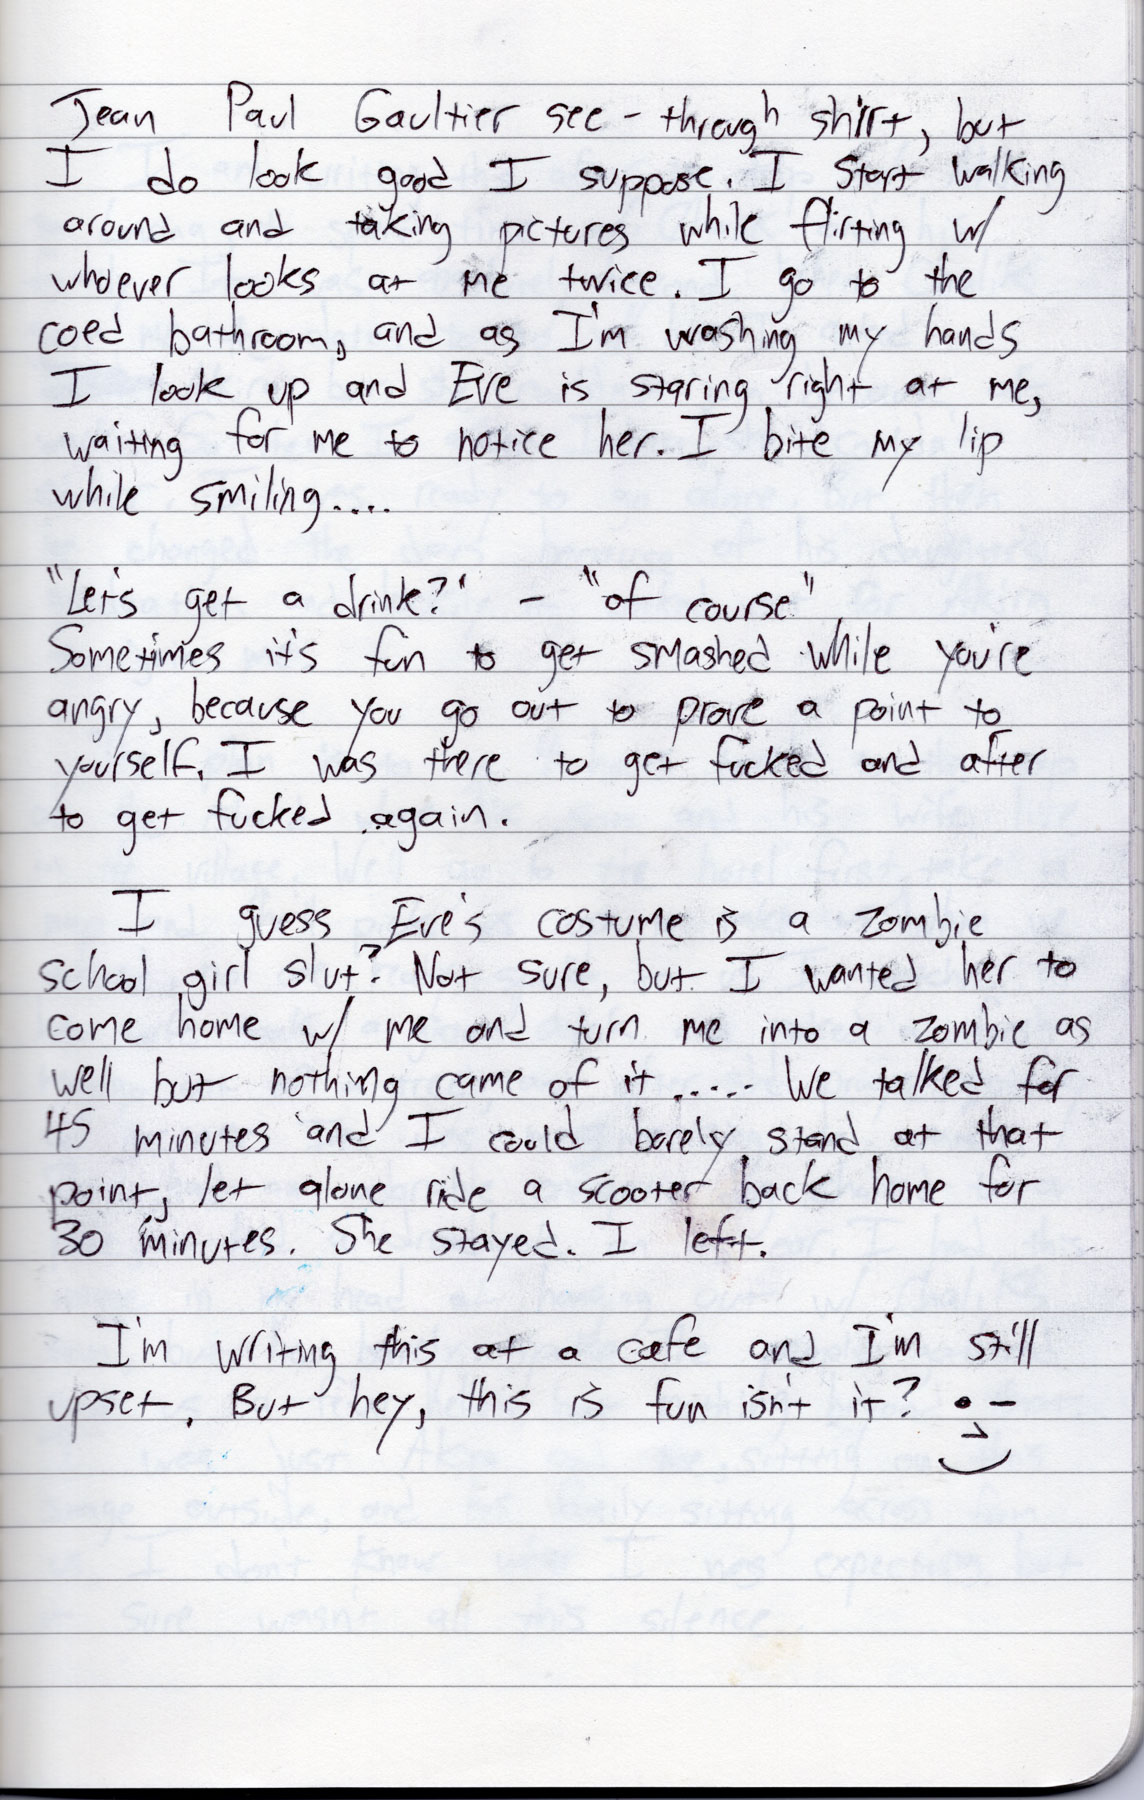 Jean Paul Gaultier see-through shirt, but
I do look good I suppose. I start walking
around and taking pictures while flirting w/
whoever looks at me twice. I go to the
coed bathroom, and as I'm washing my hands
I look up and Eve is staring right at me,
waiting for me to notice her. I bite my lip
while smiling....
"Let's get a drink?" - "of course"
Sometimes it's fun to get smashed while you're
angry, because you go out to prove a point to
yourself. I was there to get fucked and after
to get fucked again.
I guess Eve's costume is a zombie
school girl slut? Not sure, but I wanted her to
come home w/ me and turn me into a zombie as
well but nothing came of it ..... We talked for
45 minutes and I could barely stand at that
point, let alone ride a scooter back home for
30 minutes. She stayed. I left.
I'm writing this at a cafe and I'm still
upset. But hey, this is fun isn't it?